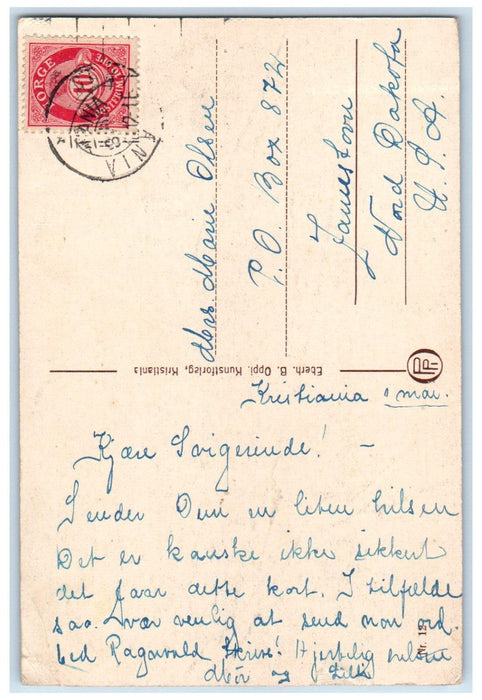 NORGE
10
Mrs Marie Olsen
P.O. Box 872
Jamestown
Nord Dakota
U.S.A.
Eberh. B. Oppi. Kunstforlag, Kristiania
Kristiania mai.
Kjære Svigerinde! –
Sender Dem en liten hilsen
Det er kanske ikke sikkert
det faar dette kort. I tilfælde
saa. vær venlig at send non ord.
bed Ragnvald skrive! Hjertelig hilsen
Mor og
Nr. 19